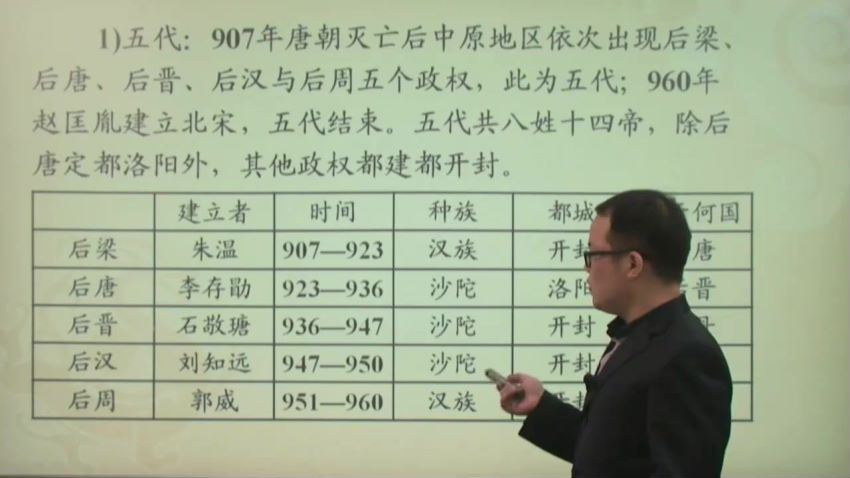 1)五代：907年唐朝灭亡后中原地区依次出现后梁、
后唐、后晋、后汉与后周五个政权，此为五代；960年
赵匡胤建立北宋，五代结束。五代共八姓十四帝，除后
唐定都洛阳外，其他政权都建都开封。
建立者 时间 种族 都 何国
后梁 朱温 907—923 汉族 开封 唐
后唐 李存勖 923—936 沙陀 洛阳 晋
后晋 石敬瑭 936—947 沙陀 开封
后汉 刘知远 947—950 沙陀 开封
后周 郭威 951—960 汉族 开